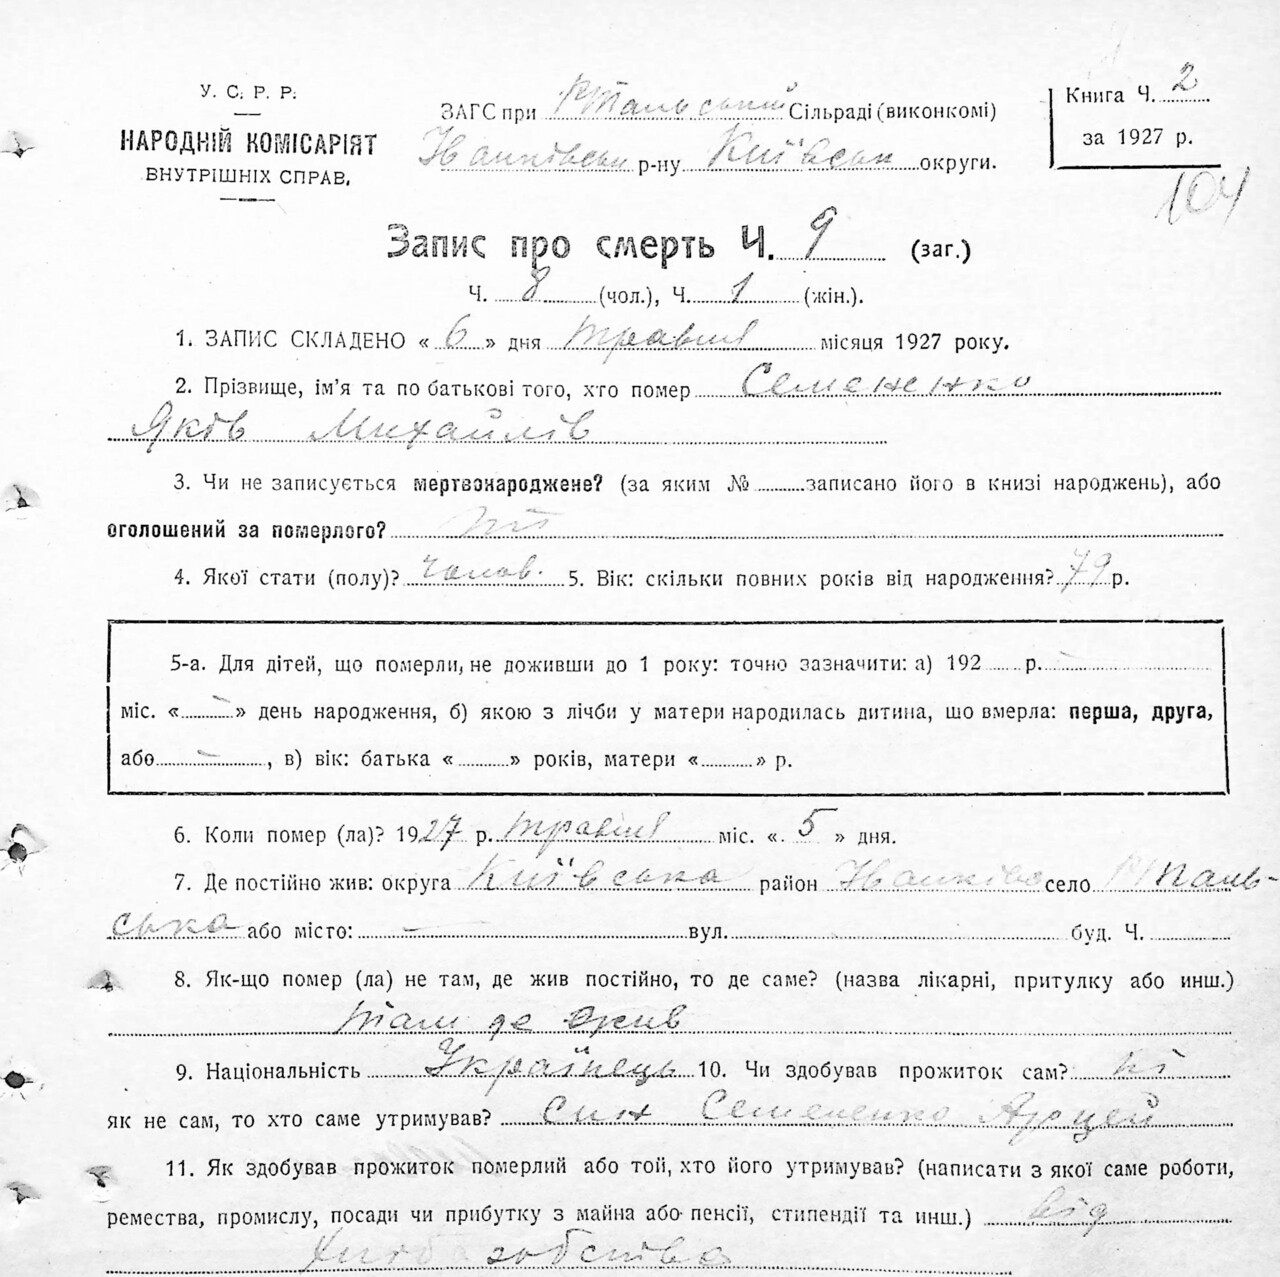 У. С. Р. Р.
НАРОДНІЙ КОМІСАРІЯТ
ВНУТРІШНІХ СПРАВ.
ЗАГС при Сільраді (виконкомі)
Іванківськ р-ну Київськ округи.
Книга Ч. 2
за 1927 р.
104
Запис про смерть Ч. 9 (заг.)
Ч. 8 (чол.), Ч. 1 (жін.).
1. ЗАПИС СКЛАДЕНО « 6 » дня травня місяця 1927 року.
2. Прізвище, ім'я та по батькові того, хто помер Семененко
Яків Михайлів
3. Чи не записується мертвонароджене? (за яким № записано його в книзі народжень), або
оголошений за померлого? ні
4. Якої стати (полу)? чолов. 5. Вік: скільки повних років від народження? 79 р.
5-а. Для дітей, що померли, не доживши до 1 року: точно зазначити: а) 192 р. —
міс. « — » день народження, б) якою з лічби у матери народилась дитина, що вмерла: перша, друга,
або — , в) вік: батька « » років, матери « » р.
6. Коли помер (ла)? 1927 р. травня міс. « 5 » дня.
7. Де постійно жив: округа Київська район Іванків село
ська або місто: — вул. буд. Ч.
8. Як-що помер (ла) не там, де жив постійно, то де саме? (назва лікарні, притулку або инш.)
там де жив
9. Національність Українець 10. Чи здобував прожиток сам? ні
як не сам, то хто саме утримував? син Семененко
11. Як здобував прожиток померлий або той, хто його утримував? (написати з якої саме роботи,
ремества, промислу, посади чи прибутку з майна або пенсії, стипендії та инш.) від
хлібаробства